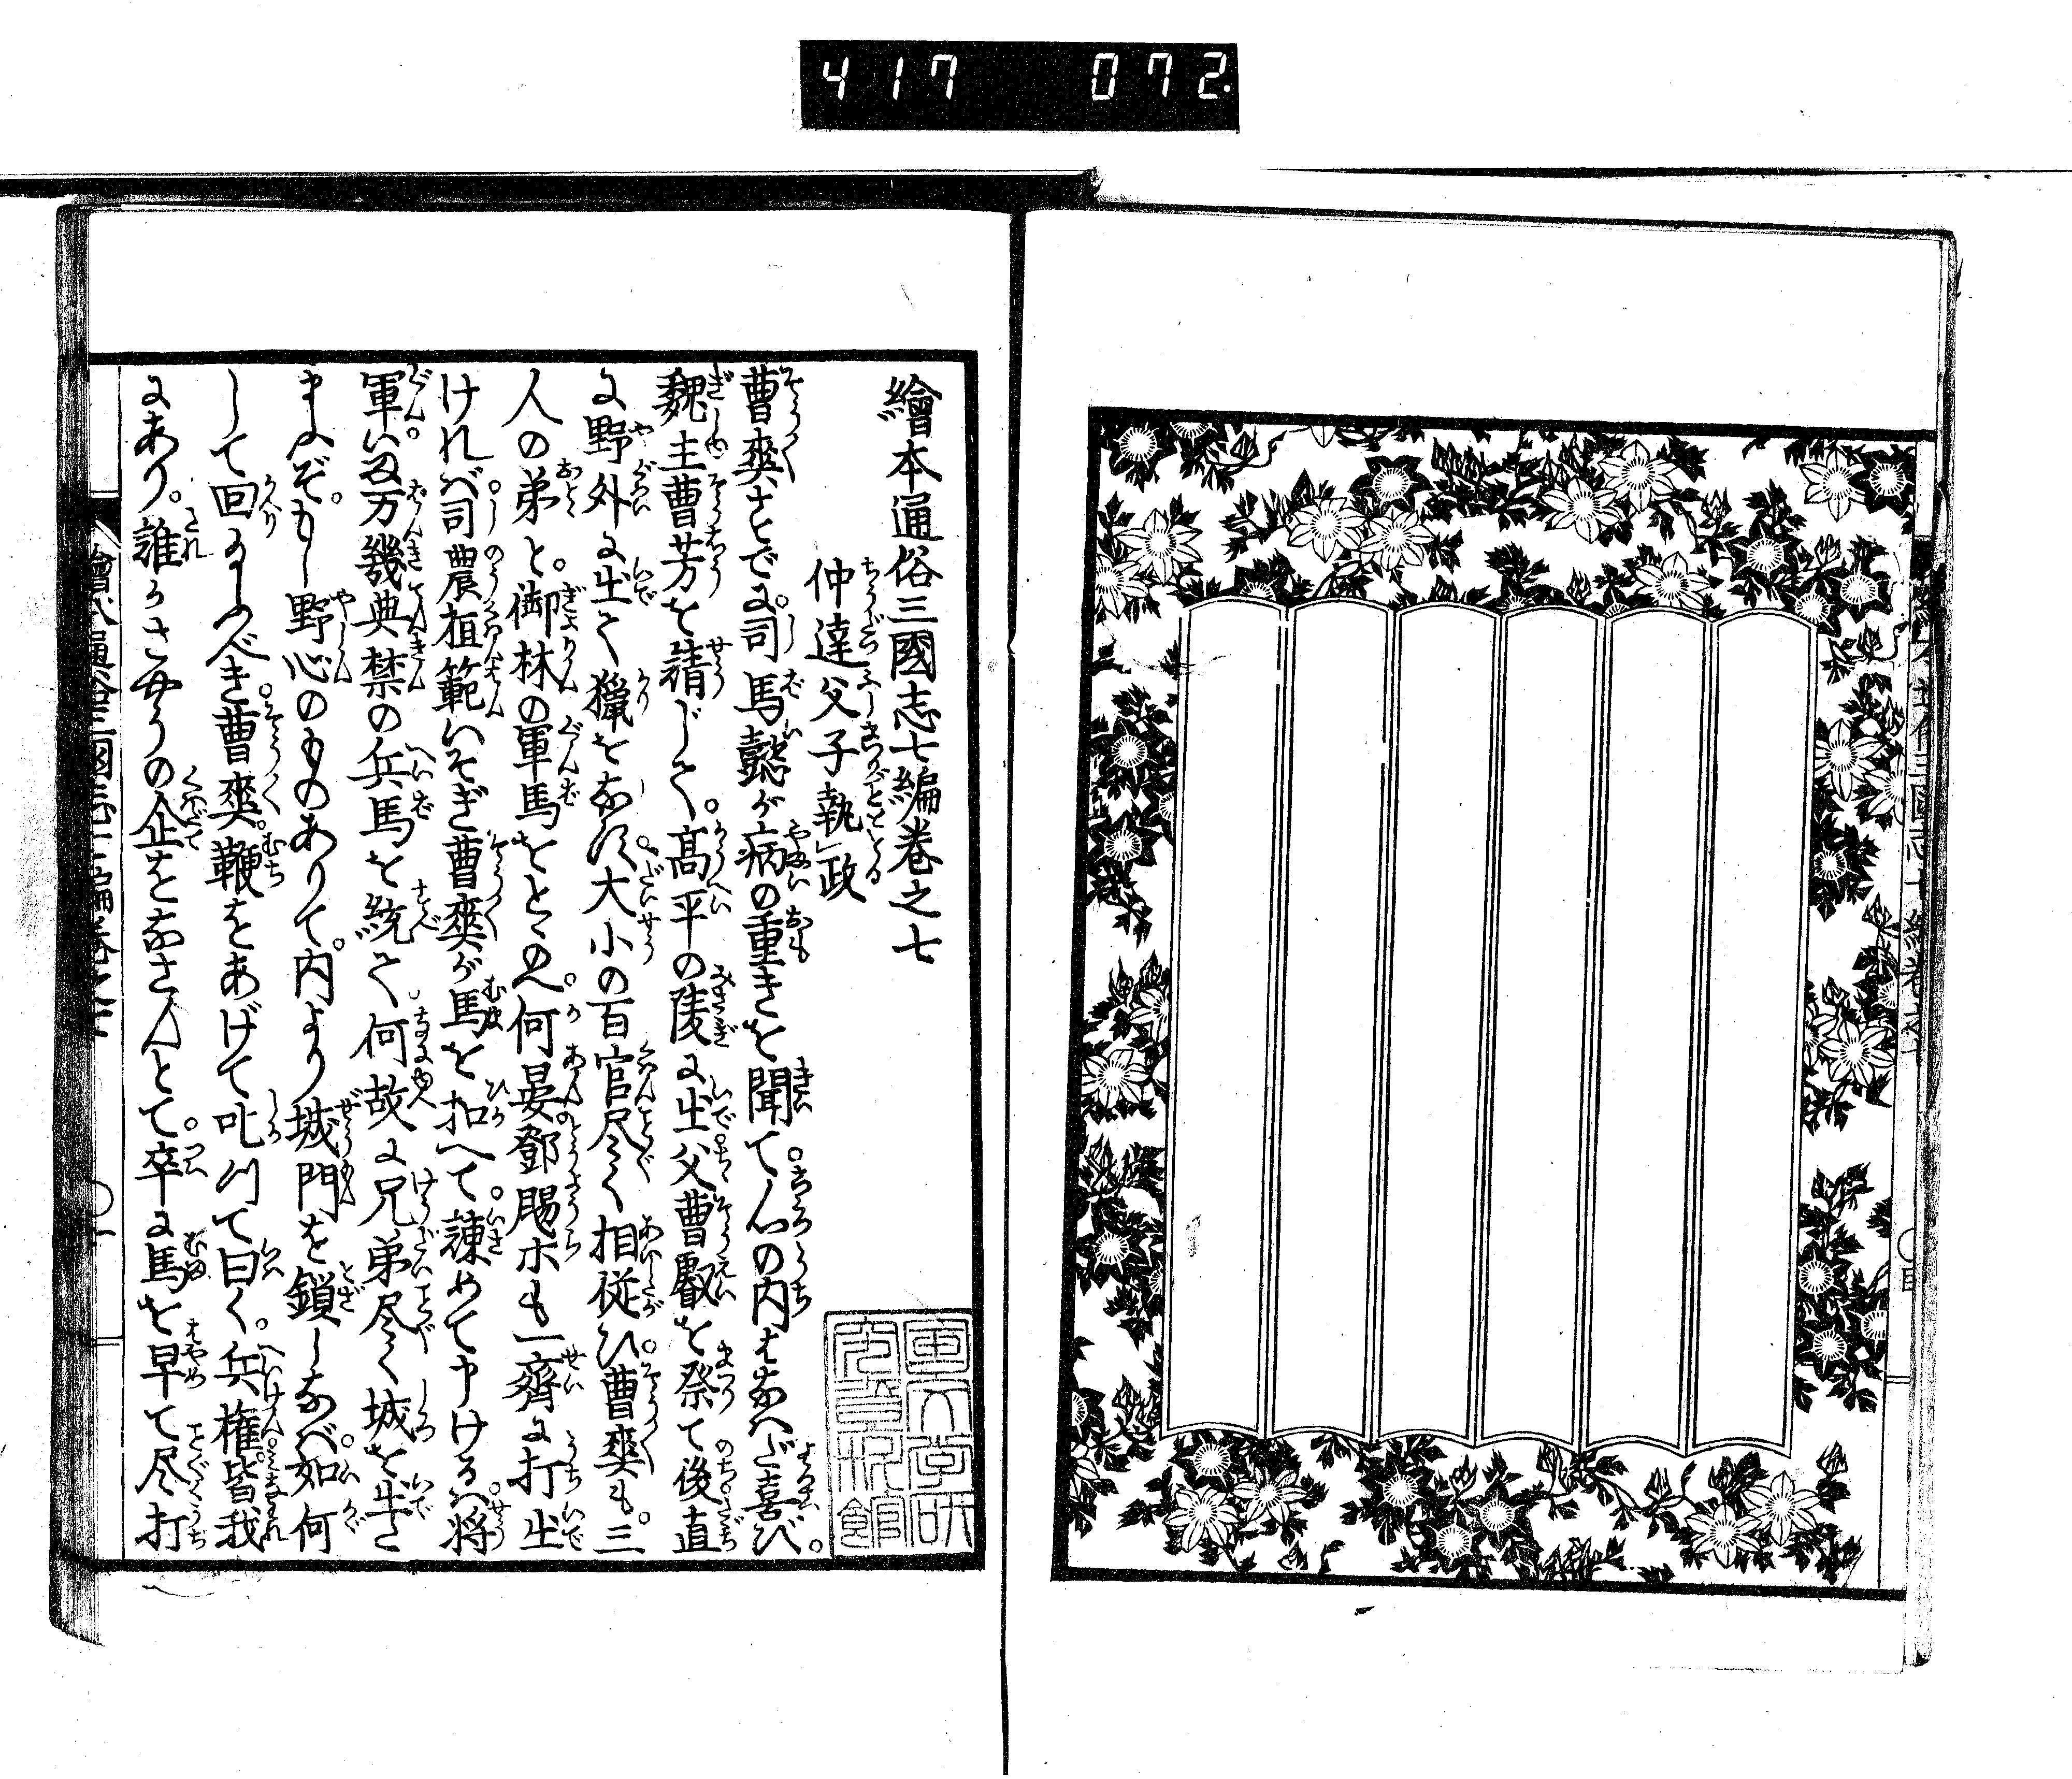 417 072.
繪本通俗三國志七編巻之七
仲達父子執政
曹爽さとでに司馬懿が病の重きを聞て心の内はなハだ喜び。
魏主曹芳を請じて。髙平の陵に出父曹叡を祭て後直
に野外に出て獵をなす。大小の百官尽く相従ひ。曹爽も。三
人の弟と。御林の軍馬をとゝのへ。何晏鄧颺ホも一齊に打出
けれバ司農桓範いそぎ曹爽が馬を扣へて。諫めて申けるハ。将
軍ハ万幾典禁の兵馬を統て何故に兄弟尽く城を出さ
まふぞ。もし野心のものありて。内より城門を鎖しなバ。如何
して回るべき。曹爽。鞭をあげて叱つて曰く。兵権。皆我
にあり。誰かさやうの企をなさんとて。卒に馬を早て尽打